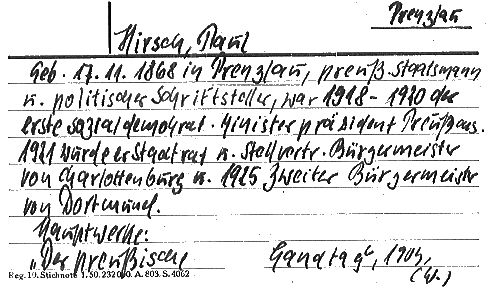 Prenzlau
Hirsch, Paul
Geb. 17. 11. 1868 in Prenzlau, preuß. Staatsmann
u. politischer Schriftsteller, war 1918 - 1920 der
erste sozialdemokrat. Minister präsident Preußens.
1921 wurde er Staatrat u. Stellvertr. Bürgermeister
von Charlottenburg u. 1925 Zweiter Bürgermeister
von Dortmund.
Hauptwerke:
„Der preußische Landtag“, 1904,
(W.)
Reg. 19. Stichnote 1. 50. 23200. A. 803. S. 4062